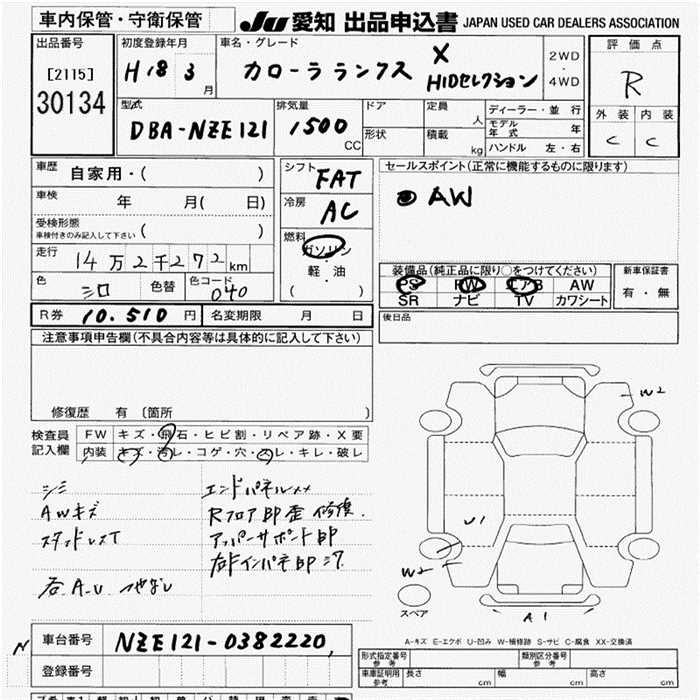 車内保管・守衛保管
JU 愛知 出品申込書 JAPAN USED CAR DEALERS ASSOCIATION
出品番号
[2115]
30134
初度登録年月
H18 3 月
車名・グレード
カローラランクス X
HIDセレクション
2WD
・
4WD
評価点
R
外装 内装
C C
型式
DBA-NZE121
排気量
1500 CC
ドア
形状
定員 人
積載 kg
ディーラー・並行
モデル年式 年
ハンドル 左・右
車歴
自家用・( )
車検 年 月( 日)
受検形態
車検付きのみ記入して下さい ( )
走行 14万2千272km
色 シロ 色替 色コード 040
シフト FAT
冷房 AC
燃料
ガソリン
・
軽・油
( )
セールスポイント(正常に機能するものに限ります)
AW
装備品(純正品に限り○をつけてください)
PS PW エアB AW
SR ナビ TV カワシート
新車保証書
有・無
R券 10.510 円 名変期限 月 日
後日品
注意事項申告欄(不具合内容等は具体的に記入して下さい)
修復歴 有〔箇所 〕
検査員記入欄
FW キズ・飛石・ヒビ割・リペア跡・X要
内装 キズ・汚レ・コゲ・穴・スレ・キレ・破レ
シミ
AWキズ
エンドパネルXX
Rフロア部歪 修復.
アッパーサポート部
右Fインパネ部
W2
U1
W2
A1
スペア
A-キズ E-エクボ U-凹み W-補修跡 S-サビ C-腐食 XX-交換済
N
車台番号 NZE121-0382220
登録番号
形式指定番号 参考
類別区分番号 参考
車庫証明用 参考 長さ cm 幅 cm 高さ cm